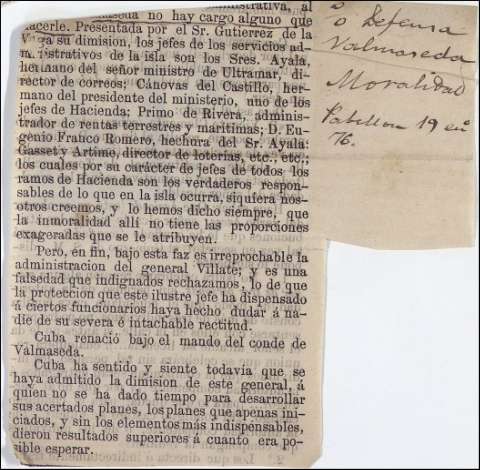 administrativa, al
Valmaseda no hay cargo alguno que
hacerle. Presentada por el Sr. Gutierrez de la
Vega su dimision, los jefes de los servicios ad-
ministrativos de la isla son los Sres. Ayala,
hermano del señor ministro de Ultramar, di-
rector de correos; Cánovas del Castillo, her-
mano del presidente del ministerio, uno de los
jefes de Hacienda; Primo de Rivera, adminis-
trador de rentas terrestres y marítimas; D. Eu-
genio Franco Romero, hechura del Sr. Ayala;
Gasset y Artime, director de loterías, etc., etc.;
los cuales por su carácter de jefes de todos los
ramos de Hacienda son los verdaderos respon-
sables de lo que en la isla ocurra, siquiera nos-
otros creemos, y lo hemos dicho siempre, que
la inmoralidad allí no tiene las proporciones
exageradas que se le atribuyen.
Pero, en fin, bajo esta faz es irreprochable la
administracion del general Villate; y es una
falsedad que indignados rechazamos, lo de que
la proteccion que este ilustre jefe ha dispensado
á ciertos funcionarios haya hecho dudar á na-
die de su severa é intachable rectitud.
Cuba renació bajo el mando del conde de
Valmaseda.
Cuba ha sentido y siente todavía que se
haya admitido la dimision de este general, á
quien no se ha dado tiempo para desarrollar
sus acertados planes, los planes que apenas ini-
ciados, y sin los elementos más indispensables,
dieron resultados superiores á cuanto era po-
sible esperar.
o Defensa
Valmaseda
Moralidad
Pabellon 19 en
76.